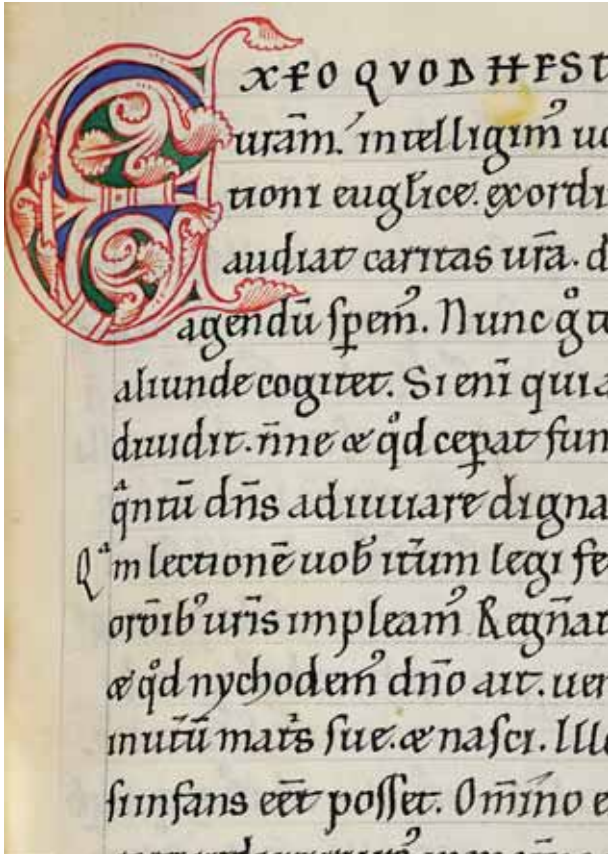 EX EO QVOD HEST
uram̄. intelligim᷒ uo
tioni eugl̄ice. exordi
audiat caritas ur̄a. d
agendū sꝑem᷒. Nunc gͦ
aliunde cogitet. Si enī quia
diuidit. n̄ne & qͦd ceꝑat fun
qᵃntū dn̄s adiuuare digna
Qᵃm lectionē uob̄ itm̄ legi fe
ordib᷒ ur̄is impleam᷒ Regn̄at
& qͦd nychodem᷒ dn̄o ait. uen
mat̄s sue. & nasci. Ille
si infans eēt posset. Om̄ino e